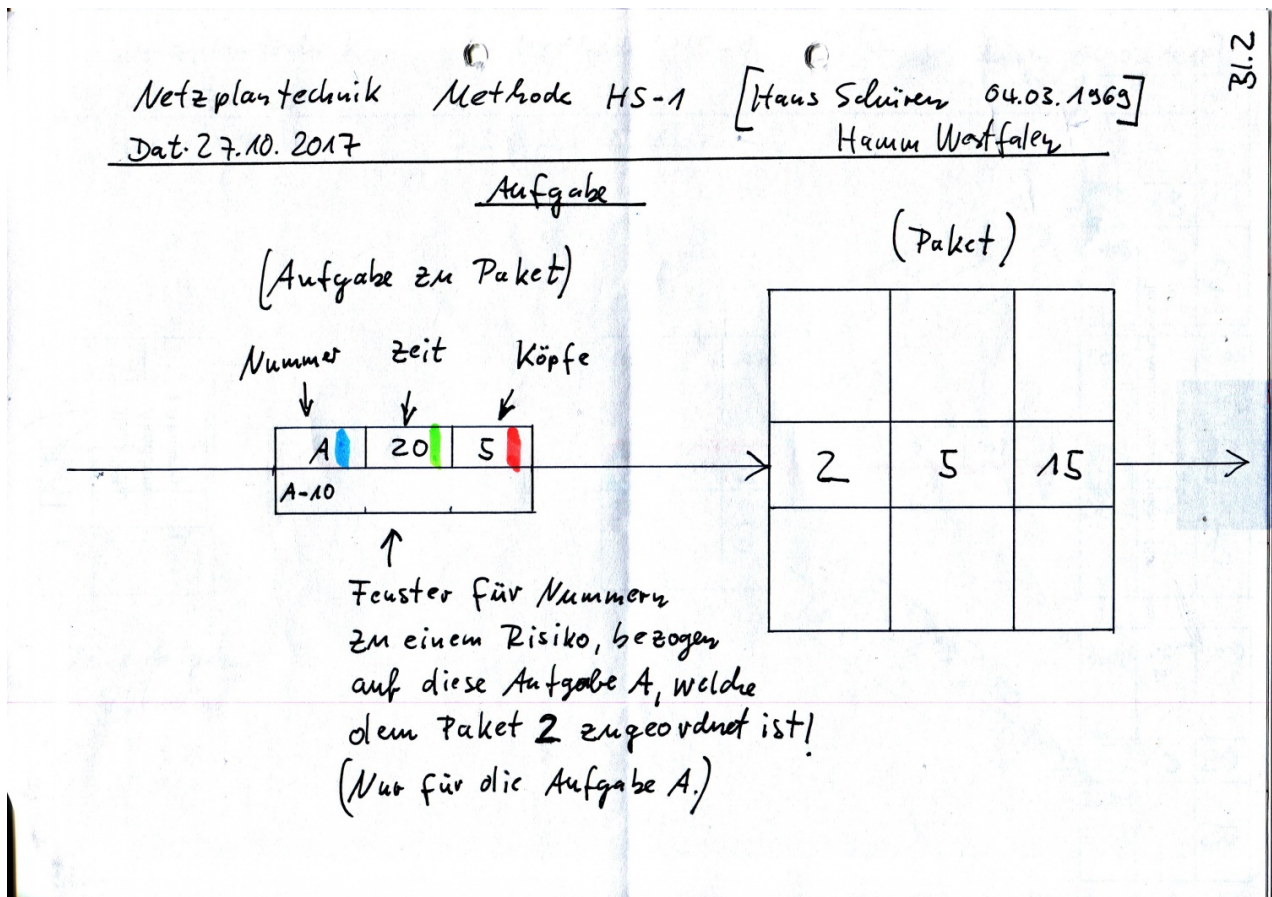 Bl. 2
Netzplantechnik Methode HS-1 [Hans Schüren 04.03.1969]
Dat. 27.10.2017 Hamm Westfalen
Aufgabe
(Paket)
(Aufgabe zu Paket)
Nummer Zeit Köpfe
A 20 5
A-10
2 5 15
Fenster für Nummern
zu einem Risiko, bezogen
auf diese Aufgabe A, welche
dem Paket 2 zugeordnet ist!
(Nur für die Aufgabe A.)